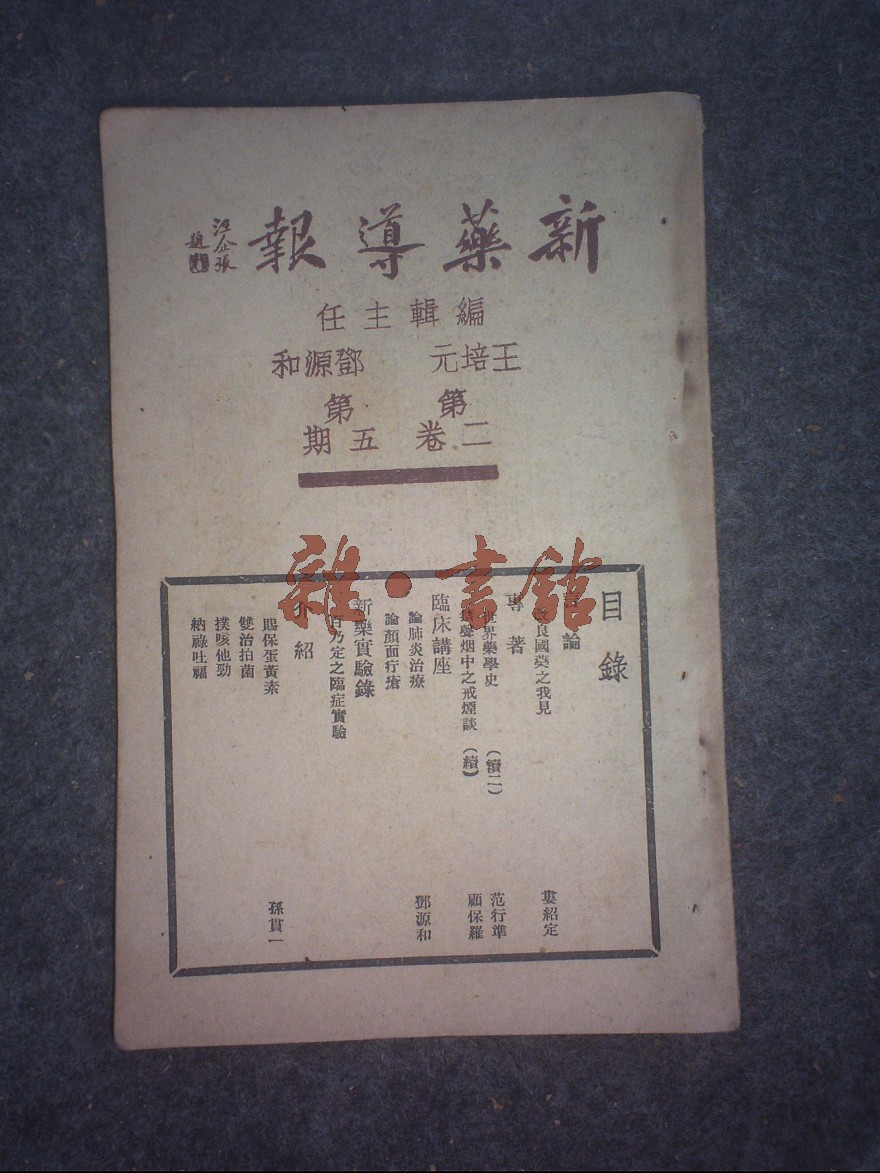 新藥導報
汪企張
題
編輯主任
王培元 鄧源和
第二卷 第五期
雜·書館
目錄
論
改良國藥之我見 婁紹定
專著
世界藥學史 （續二） 范行準
聲烟中之戒煙談 （續） 顧保羅
臨床講座
論肺炎治療 鄧源和
論顏面疔瘡
新藥實驗錄
百乃定之臨症實驗
介紹
賜保蛋黃素 孫貫一
雙治拍菌
撲咳他勁
納祿吐福